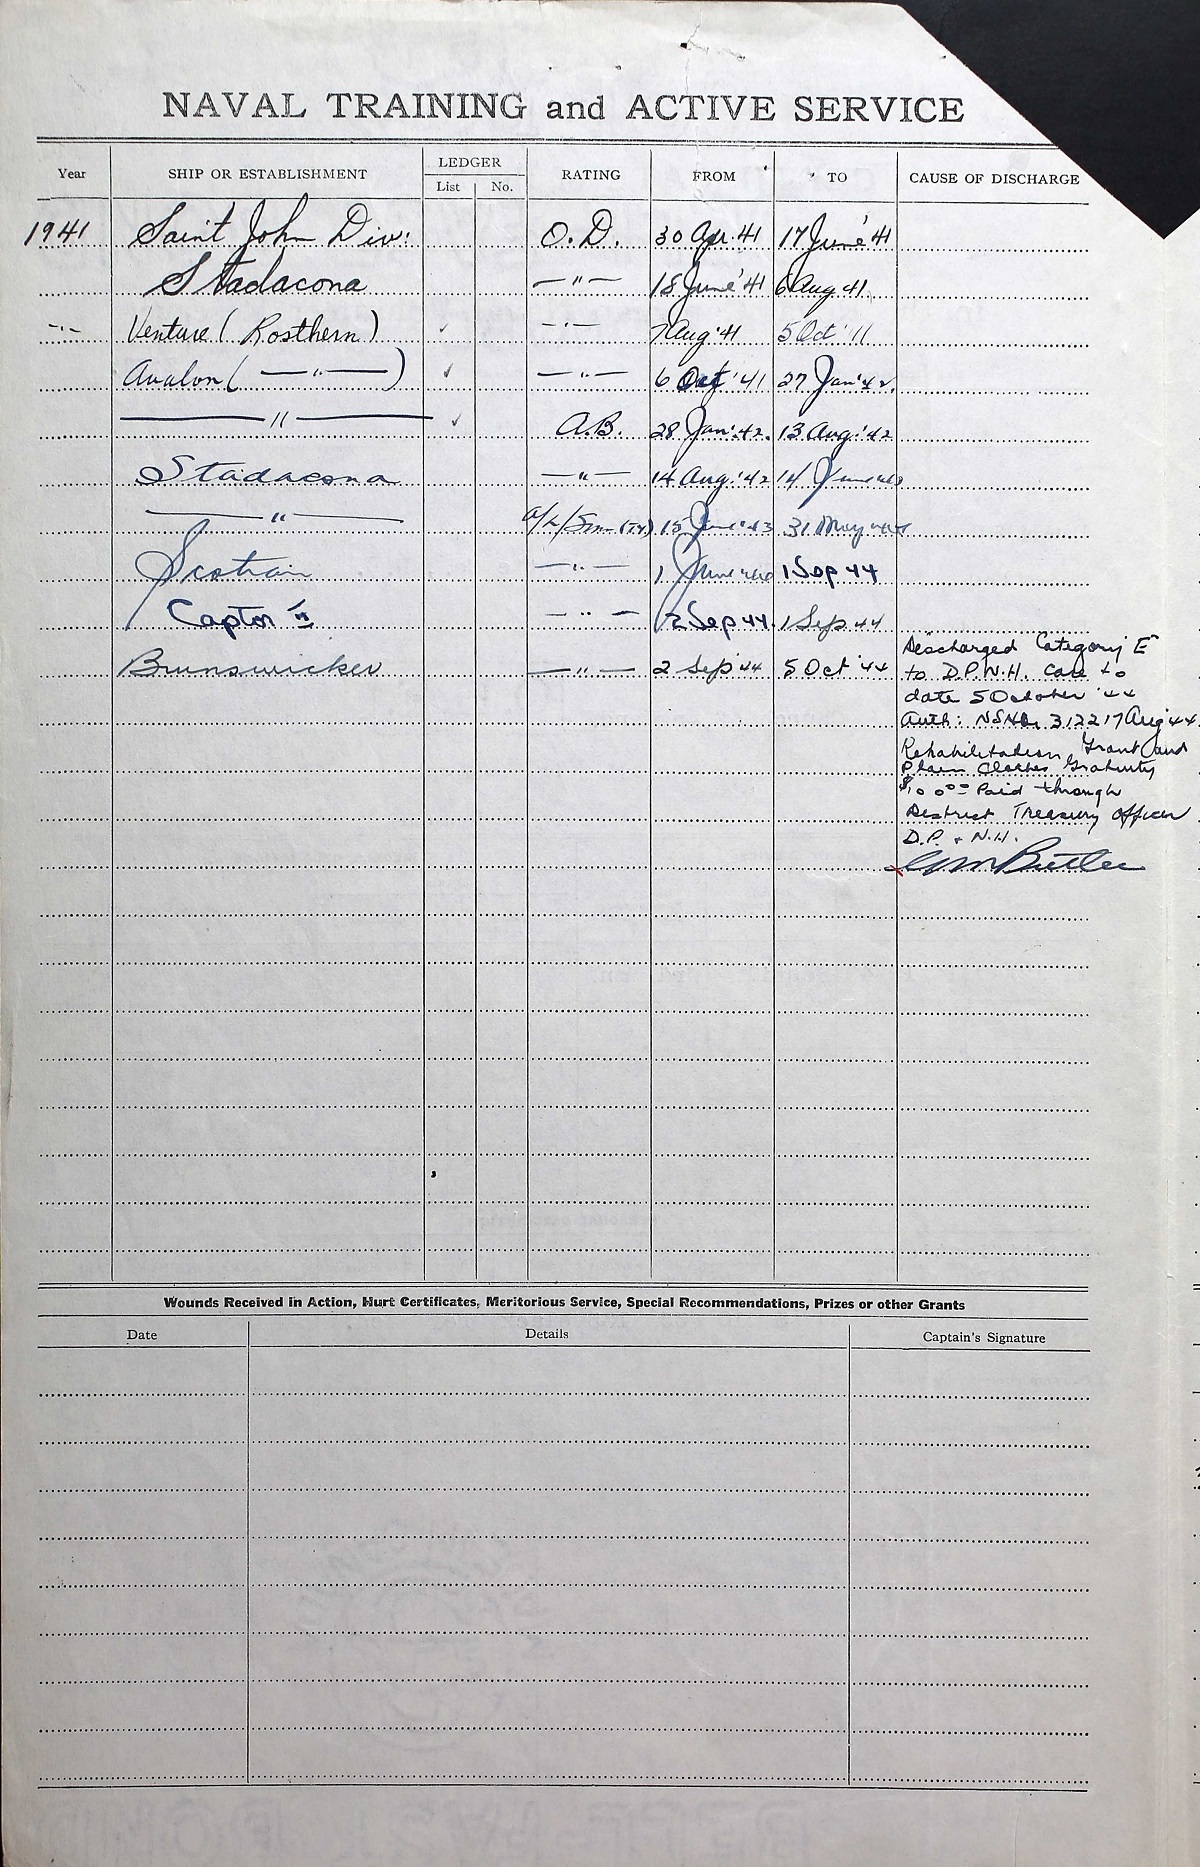 NAVAL TRAINING and ACTIVE SERVICE
Year SHIP OR ESTABLISHMENT LEDGER RATING FROM TO CAUSE OF DISCHARGE
List No.
1941 Saint John Div: O.D. 30 Apr. 41 17 June '41
Stadacona —"— 18 June '41 6 Aug 41
-"- Venture (Rosthern) ✓ —"— 7 Aug '41 5 Oct '41
Avalon (—"—) ✓ —"— 6 Oct '41 27 Jan '42.
—"— ✓ A.B. 28 Jan '42. 13 Aug. '42
Stadacona —"— 14 Aug. '42 14 June
—"— 15 June '43 31 May 44
Scotian —"— 1 June 1 Sep 44
Captor II —"— 2 Sep 44. 1 Sep 44
Brunswicker —"— 2 Sep '44 5 Oct '44
Discharged Category E
to D.P.N.H. Case to
date 5 October '44
Auth: 31221 7 Aug '44
Rehabilitation Grant and
Plain Clothes Gratuity
$100.00 Paid through
District Treasury Officer
D.P. & N.H.
Butler
Wounds Received in Action, Hurt Certificates, Meritorious Service, Special Recommendations, Prizes or other Grants
Date Details Captain's Signature